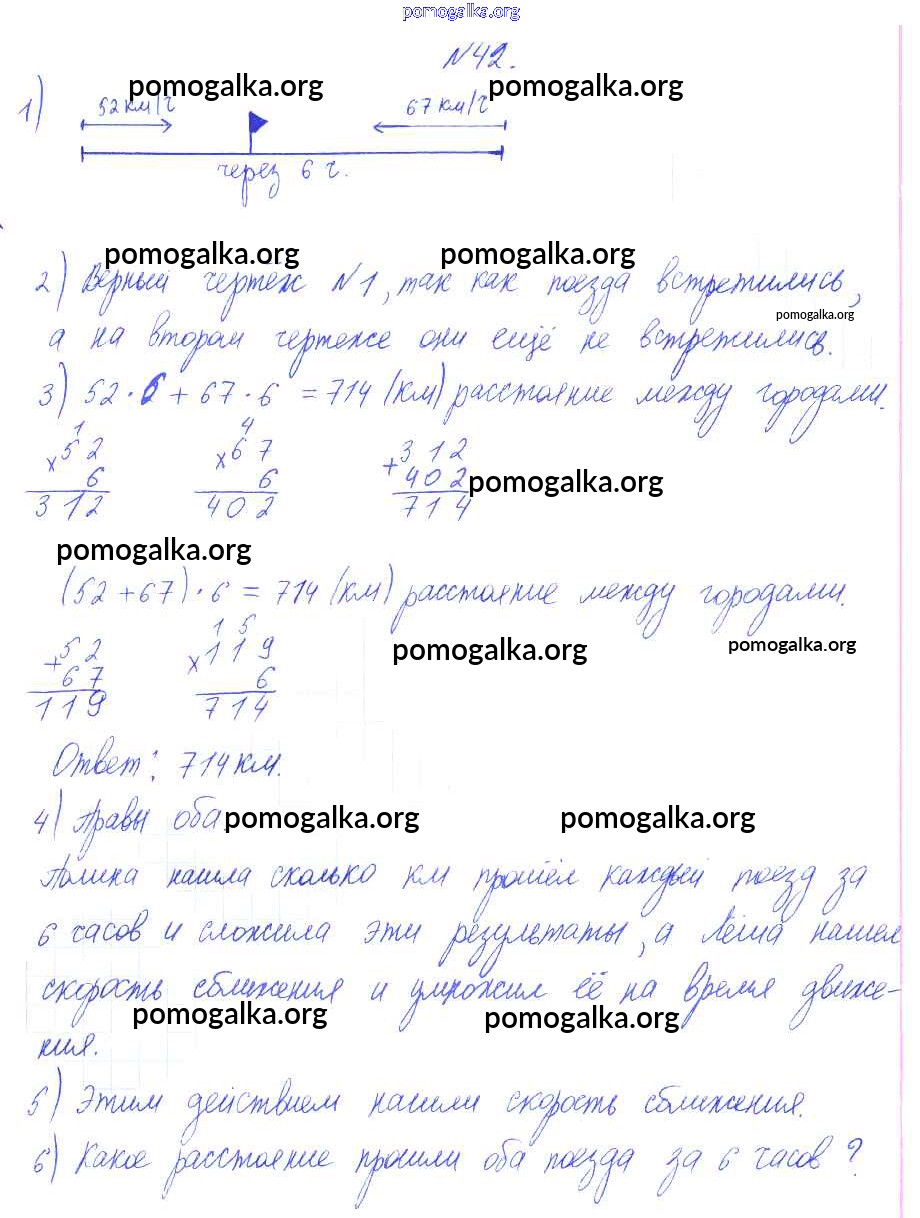 pomogalka.org
№42.
pomogalka.org pomogalka.org
1) 52 км/ч 67 км/ч
через 6 ч.
pomogalka.org pomogalka.org
2) Верный чертёж №1, так как поезда встретились,
pomogalka.org
а на втором чертеже они ещё не встретились.
3) 52 · 6 + 67 · 6 = 714 (км) расстояние между городами.
1 4
×52 ×67 +312
6 6 402 pomogalka.org
312 402 714
pomogalka.org
(52 + 67) · 6 = 714 (км) расстояние между городами.
1 5
+52 ×119 pomogalka.org pomogalka.org
67 6
119 714
Ответ: 714 км.
4) Правы оба. pomogalka.org pomogalka.org
Полина нашла сколько км прошёл каждый поезд за
6 часов и сложила эти результаты, а Лёша нашел
скорость сближения и умножил её на время движе-
pomogalka.org pomogalka.org
ния.
5) Этим действием нашли скорость сближения.
6) Какое расстояние прошли оба поезда за 6 часов?